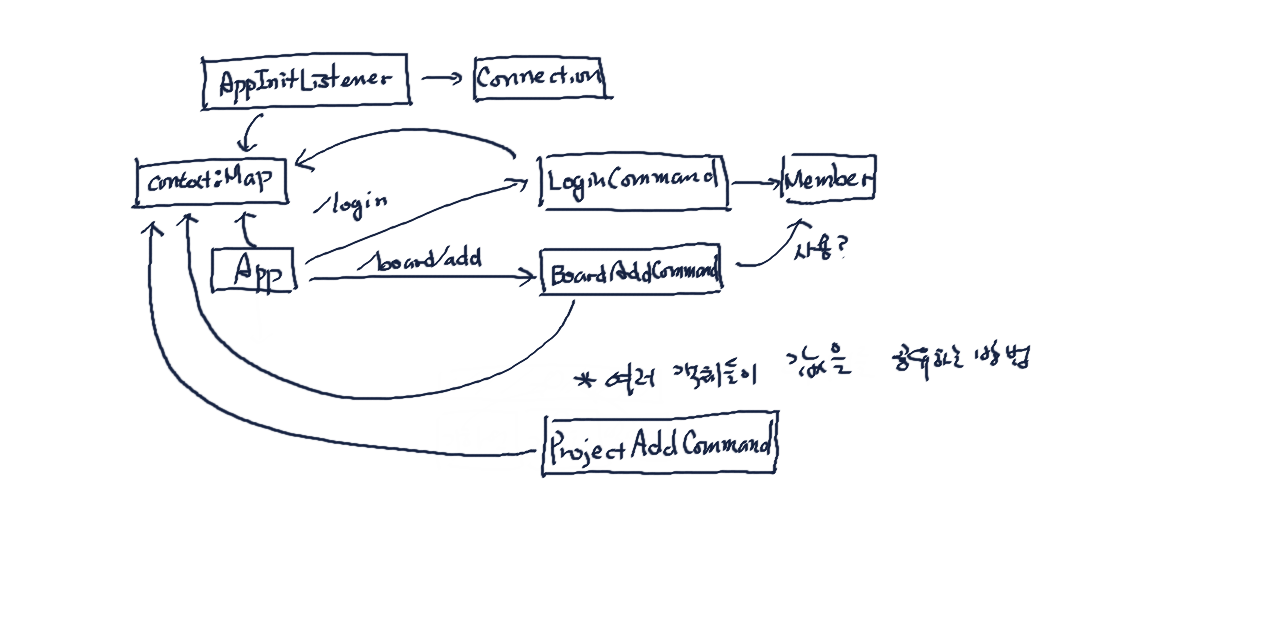 AppInitListener
Connection
context:Map
LoginCommand
Member
/login
App
/board/add
BoardAddCommand
사용?
* 여러 객체들이 값을 공유하는 방법
ProjectAddCommand